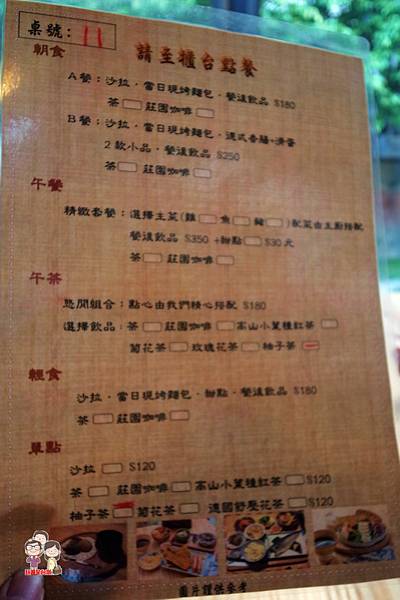 桌號：11
請至櫃台點餐
朝食
A餐：沙拉．當日現烤麵包．餐後飲品 $180
茶 莊園咖啡
B餐：沙拉．當日現烤麵包．德式香腸+滑蛋
2款小品．餐後飲品 $250
茶 莊園咖啡
午餐
精緻套餐：選擇主菜(雞 魚 豬 )配菜由主廚搭配
餐後飲品 $350 +甜點 $30元
茶 莊園咖啡
午茶
悠閒組合：點心由我們精心搭配 $180
選擇飲品：茶 莊園咖啡 高山小葉種紅茶
菊花茶 玫瑰花茶 柚子茶
輕食
沙拉．當日現烤麵包．甜點．餐後飲品 $180
茶 莊園咖啡
單點
沙拉 $120
茶 莊園咖啡 高山小葉種紅茶 $120
柚子茶 菊花茶 德國舒壓花茶 $120
圖片謹供參考